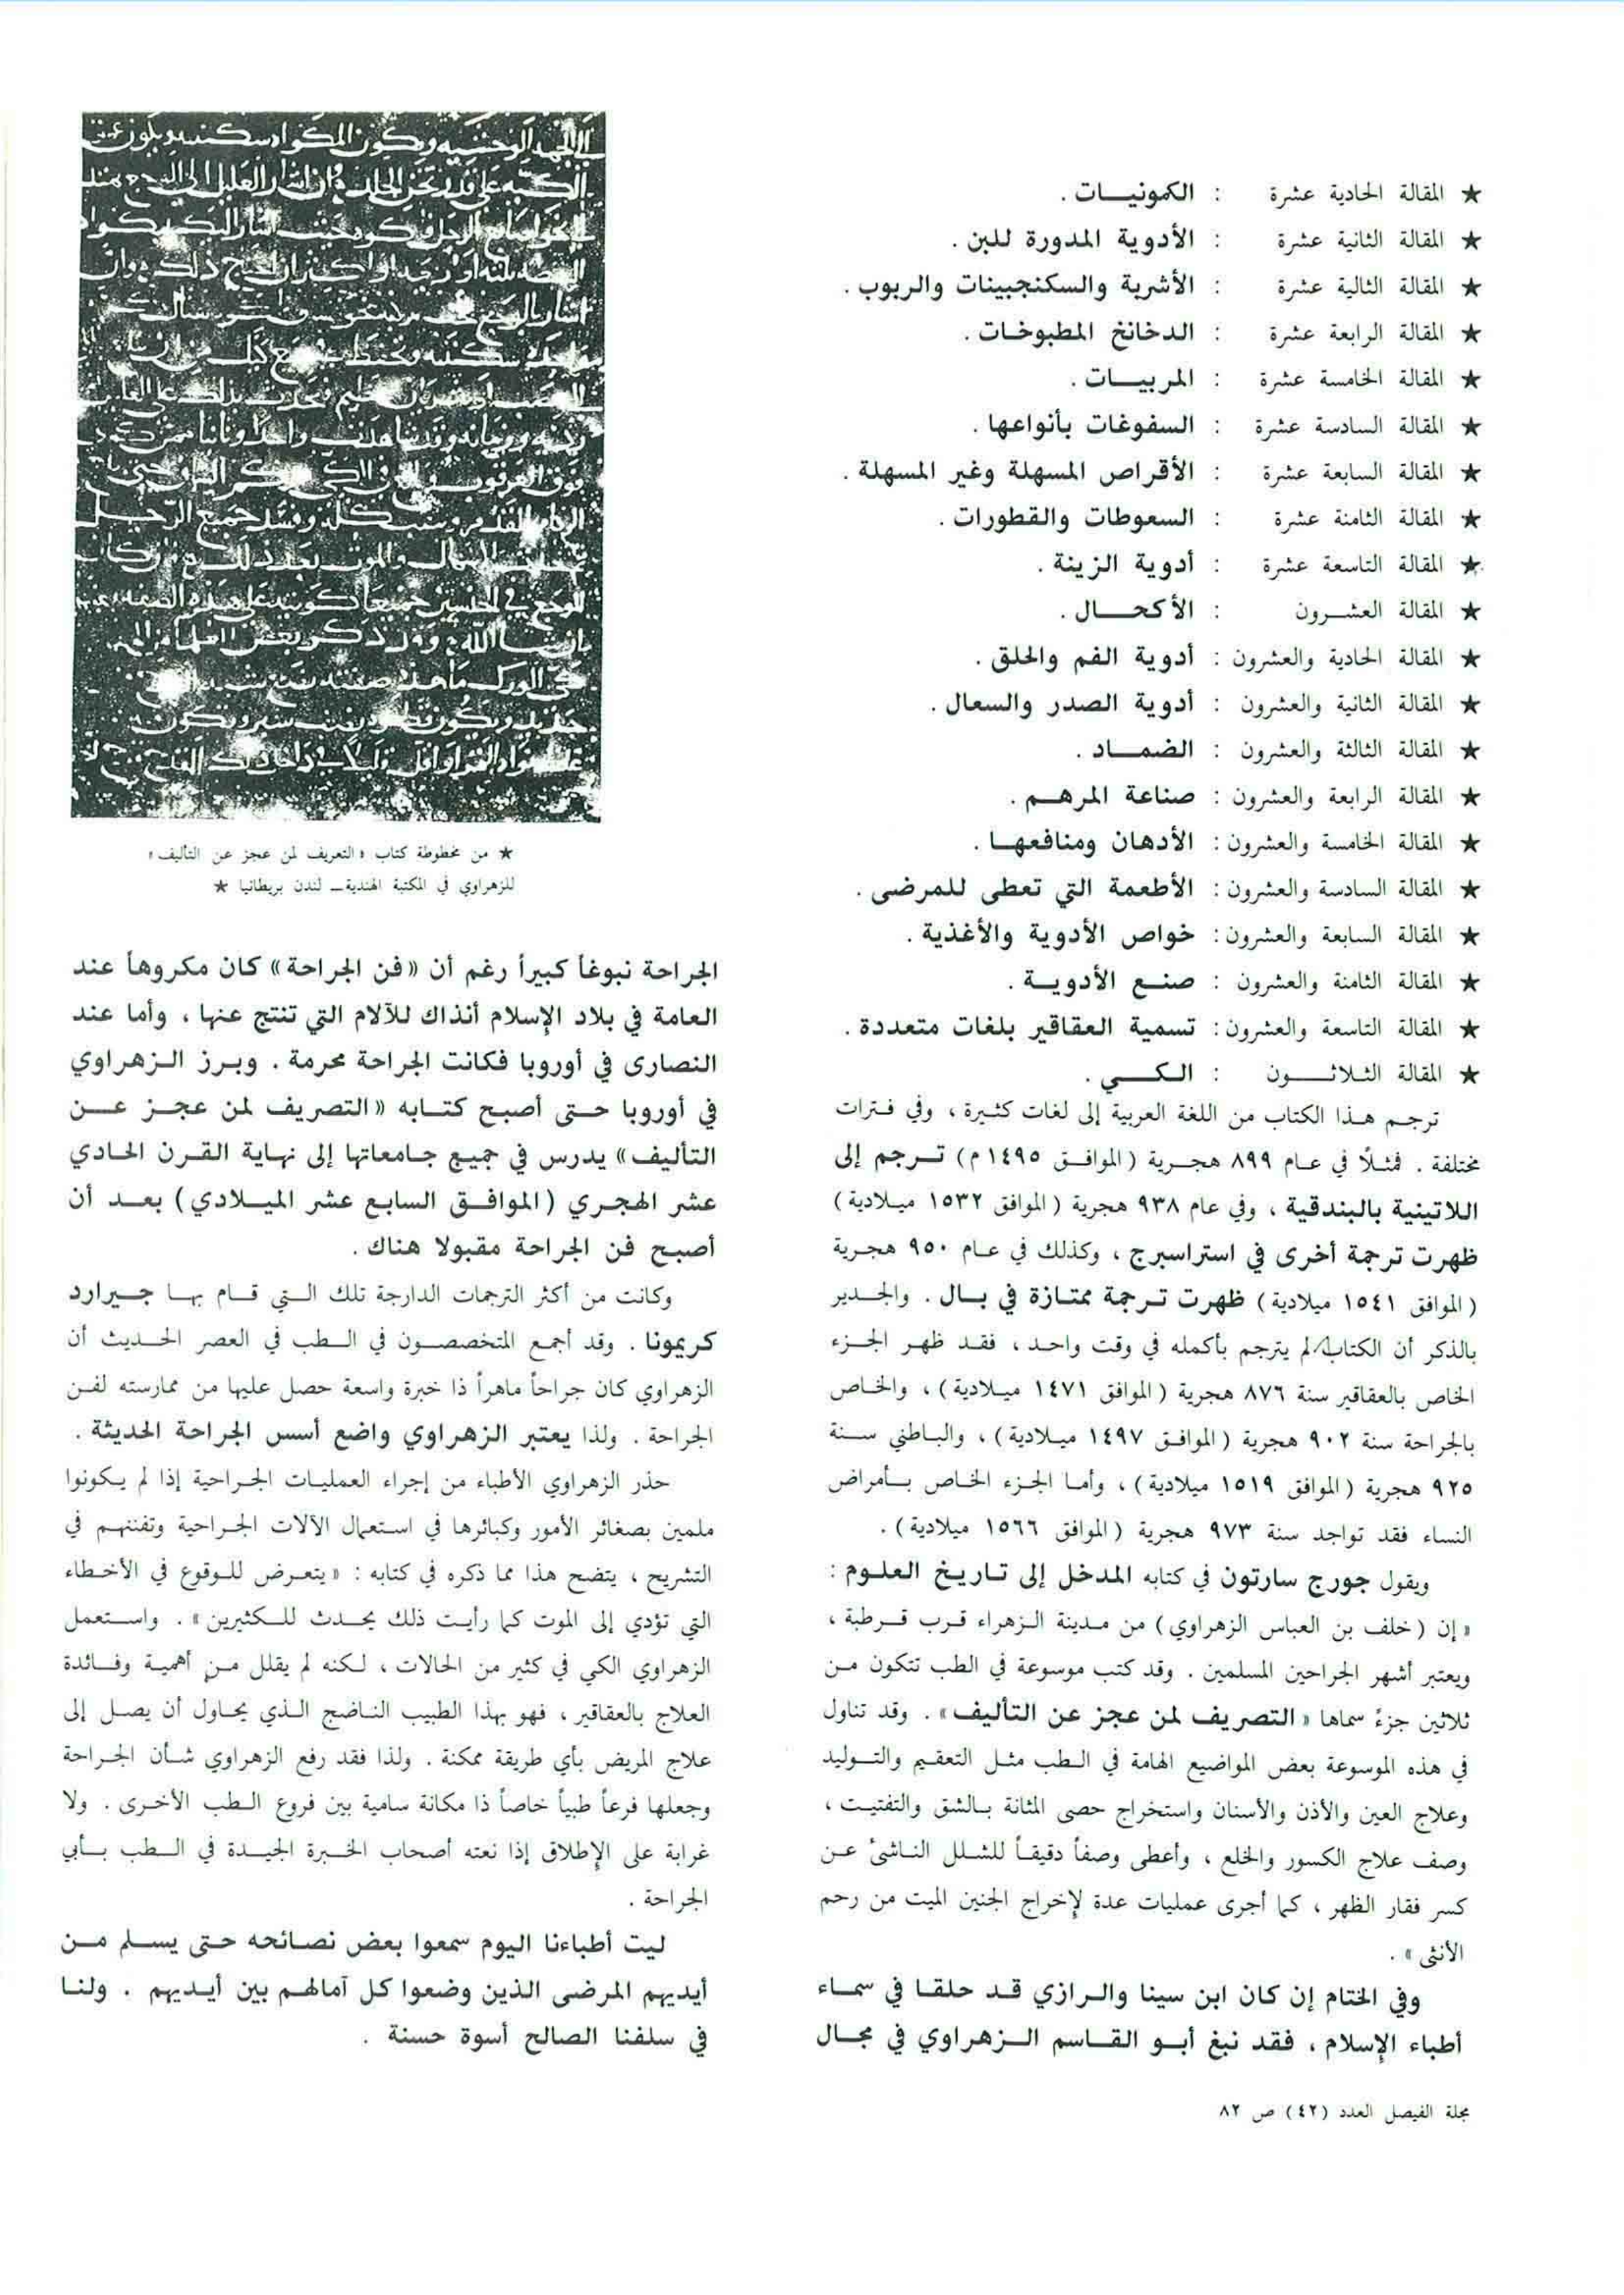 ★ المقالة الحادية عشرة : الكمونيات .
★ المقالة الثانية عشرة : الأدوية المدورة للبن .
★ المقالة الثالية عشرة : الأشربة والسكنجبينات والربوب .
★ المقالة الرابعة عشرة : الدخانخ المطبوخات .
★ المقالة الخامسة عشرة : المربيات .
★ المقالة السادسة عشرة : السفوغات بأنواعها .
★ المقالة السابعة عشرة : الأقراص المسهلة وغير المسهلة .
★ المقالة الثامنة عشرة : السعوطات والقطورات .
★ المقالة التاسعة عشرة : أدوية الزينة .
★ المقالة العشرون : الأكحال .
★ المقالة الحادية والعشرون : أدوية الفم والحلق .
★ المقالة الثانية والعشرون : أدوية الصدر والسعال .
★ المقالة الثالثة والعشرون : الضماد .
★ المقالة الرابعة والعشرون : صناعة المرهم .
★ المقالة الخامسة والعشرون : الأدهان ومنافعها .
★ المقالة السادسة والعشرون : الأطعمة التي تعطى للمرضى .
★ المقالة السابعة والعشرون : خواص الأدوية والأغذية .
★ المقالة الثامنة والعشرون : صنع الأدوية .
★ المقالة التاسعة والعشرون : تسمية العقاقير بلغات متعددة .
★ المقالة الثلاثون : الكي .
ترجم هذا الكتاب من اللغة العربية إلى لغات كثيرة ، وفي فترات
مختلفة . فمثلاً في عام ٨٩٩ هجرية (الموافق ١٤٩٥ م) ترجم إلى
اللاتينية بالبندقية ، وفي عام ٩٣٨ هجرية (الموافق ١٥٣٢ ميلادية)
ظهرت ترجمة أخرى في استراسبرج ، وكذلك في عام ٩٥٠ هجرية
(الموافق ١٥٤١ ميلادية) ظهرت ترجمة ممتازة في بال . والجدير
بالذكر أن الكتاب لم يترجم بأكمله في وقت واحد ، فقد ظهر الجزء
الخاص بالعقاقير سنة ٨٧٦ هجرية (الموافق ١٤٧١ ميلادية) ، والخاص
بالجراحة سنة ٩٠٢ هجرية (الموافق ١٤٩٧ ميلادية) ، والباطني سنة
٩٢٥ هجرية (الموافق ١٥١٩ ميلادية) ، وأما الجزء الخاص بأمراض
النساء فقد تواجد سنة ٩٧٣ هجرية (الموافق ١٥٦٦ ميلادية) .
ويقول جورج سارتون في كتابه المدخل إلى تاريخ العلوم :
« إن (خلف بن العباس الزهراوي) من مدينة الزهراء قرب قرطبة ،
ويعتبر أشهر الجراحين المسلمين . وقد كتب موسوعة في الطب تتكون من
ثلاثين جزءً سماها « التصريف لمن عجز عن التأليف » . وقد تناول
في هذه الموسوعة بعض المواضيع الهامة في الطب مثل التعقيم والتوليد
وعلاج العين والأذن والأسنان واستخراج حصى المثانة بالشق والتفتيت ،
وصف علاج الكسور والخلع ، وأعطى وصفاً دقيقاً للشلل الناشئ عن
كسر فقار الظهر ، كما أجرى عمليات عدة لإخراج الجنين الميت من رحم
الأنثى » .
وفي الختام إن كان ابن سينا والرازي قد حلقا في سماء
أطباء الإسلام ، فقد نبغ أبو القاسم الزهراوي في مجال
★ من مخطوطة كتاب « التعريف لمن عجز عن التأليف »
للزهراوي في المكتبة الهندية – لندن بريطانيا ★
الجراحة نبوغاً كبيراً رغم أن «فن الجراحة» كان مكروهاً عند
العامة في بلاد الإسلام أنذاك للآلام التي تنتج عنها ، وأما عند
النصارى في أوروبا فكانت الجراحة محرمة . وبرز الزهراوي
في أوروبا حتى أصبح كتابه « التصريف لمن عجز عن
التأليف » يدرس في جميع جامعاتها إلى نهاية القرن الحادي
عشر الهجري (الموافق السابع عشر الميلادي) بعد أن
أصبح فن الجراحة مقبولا هناك .
وكانت من أكثر الترجمات الدارجة تلك التي قام بها جيرارد
كريمونا . وقد أجمع المتخصصون في الطب في العصر الحديث أن
الزهراوي كان جراحاً ماهراً ذا خبرة واسعة حصل عليها من ممارسته لفن
الجراحة . ولذا يعتبر الزهراوي واضع أسس الجراحة الحديثة .
حذر الزهراوي الأطباء من إجراء العمليات الجراحية إذا لم يكونوا
ملمين بصغائر الأمور وكبائرها في استعمال الآلات الجراحية وتفننهم في
التشريح ، يتضح هذا مما ذكره في كتابه : « يتعرض للوقوع في الأخطاء
التي تؤدي إلى الموت كما رأيت ذلك يحدث للكثيرين » . واستعمل
الزهراوي الكي في كثير من الحالات ، لكنه لم يقلل من أهمية وفائدة
العلاج بالعقاقير ، فهو بهذا الطبيب الناضج الذي يحاول أن يصل إلى
علاج المريض بأي طريقة ممكنة . ولذا فقد رفع الزهراوي شأن الجراحة
وجعلها فرعاً طبياً خاصاً ذا مكانة سامية بين فروع الطب الأخرى . ولا
غرابة على الإطلاق إذا نعته أصحاب الخبرة الجيدة في الطب بأبي
الجراحة .
ليت أطباءنا اليوم سمعوا بعض نصائحه حتى يسلم من
أيديهم المرضى الذين وضعوا كل آمالهم بين أيديهم . ولنا
في سلفنا الصالح أسوة حسنة .
مجلة الفيصل العدد (٤٢) ص ٨٢